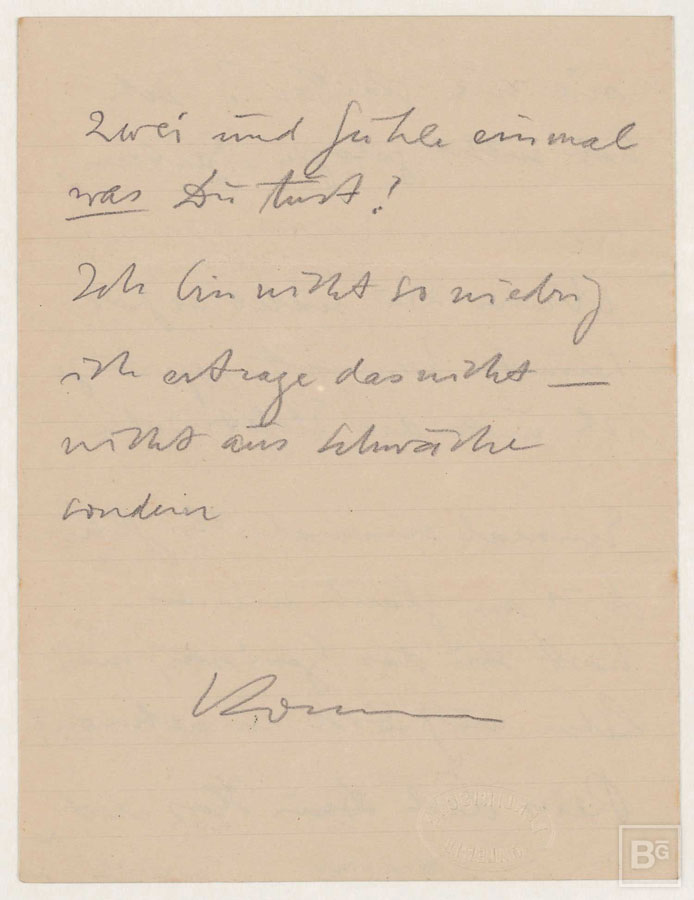 zwei und fühle einmal
was Du tust?
Ich bin nicht so niedrig
ich ertrage das nicht —
nicht aus Schwäche
sondern
BG